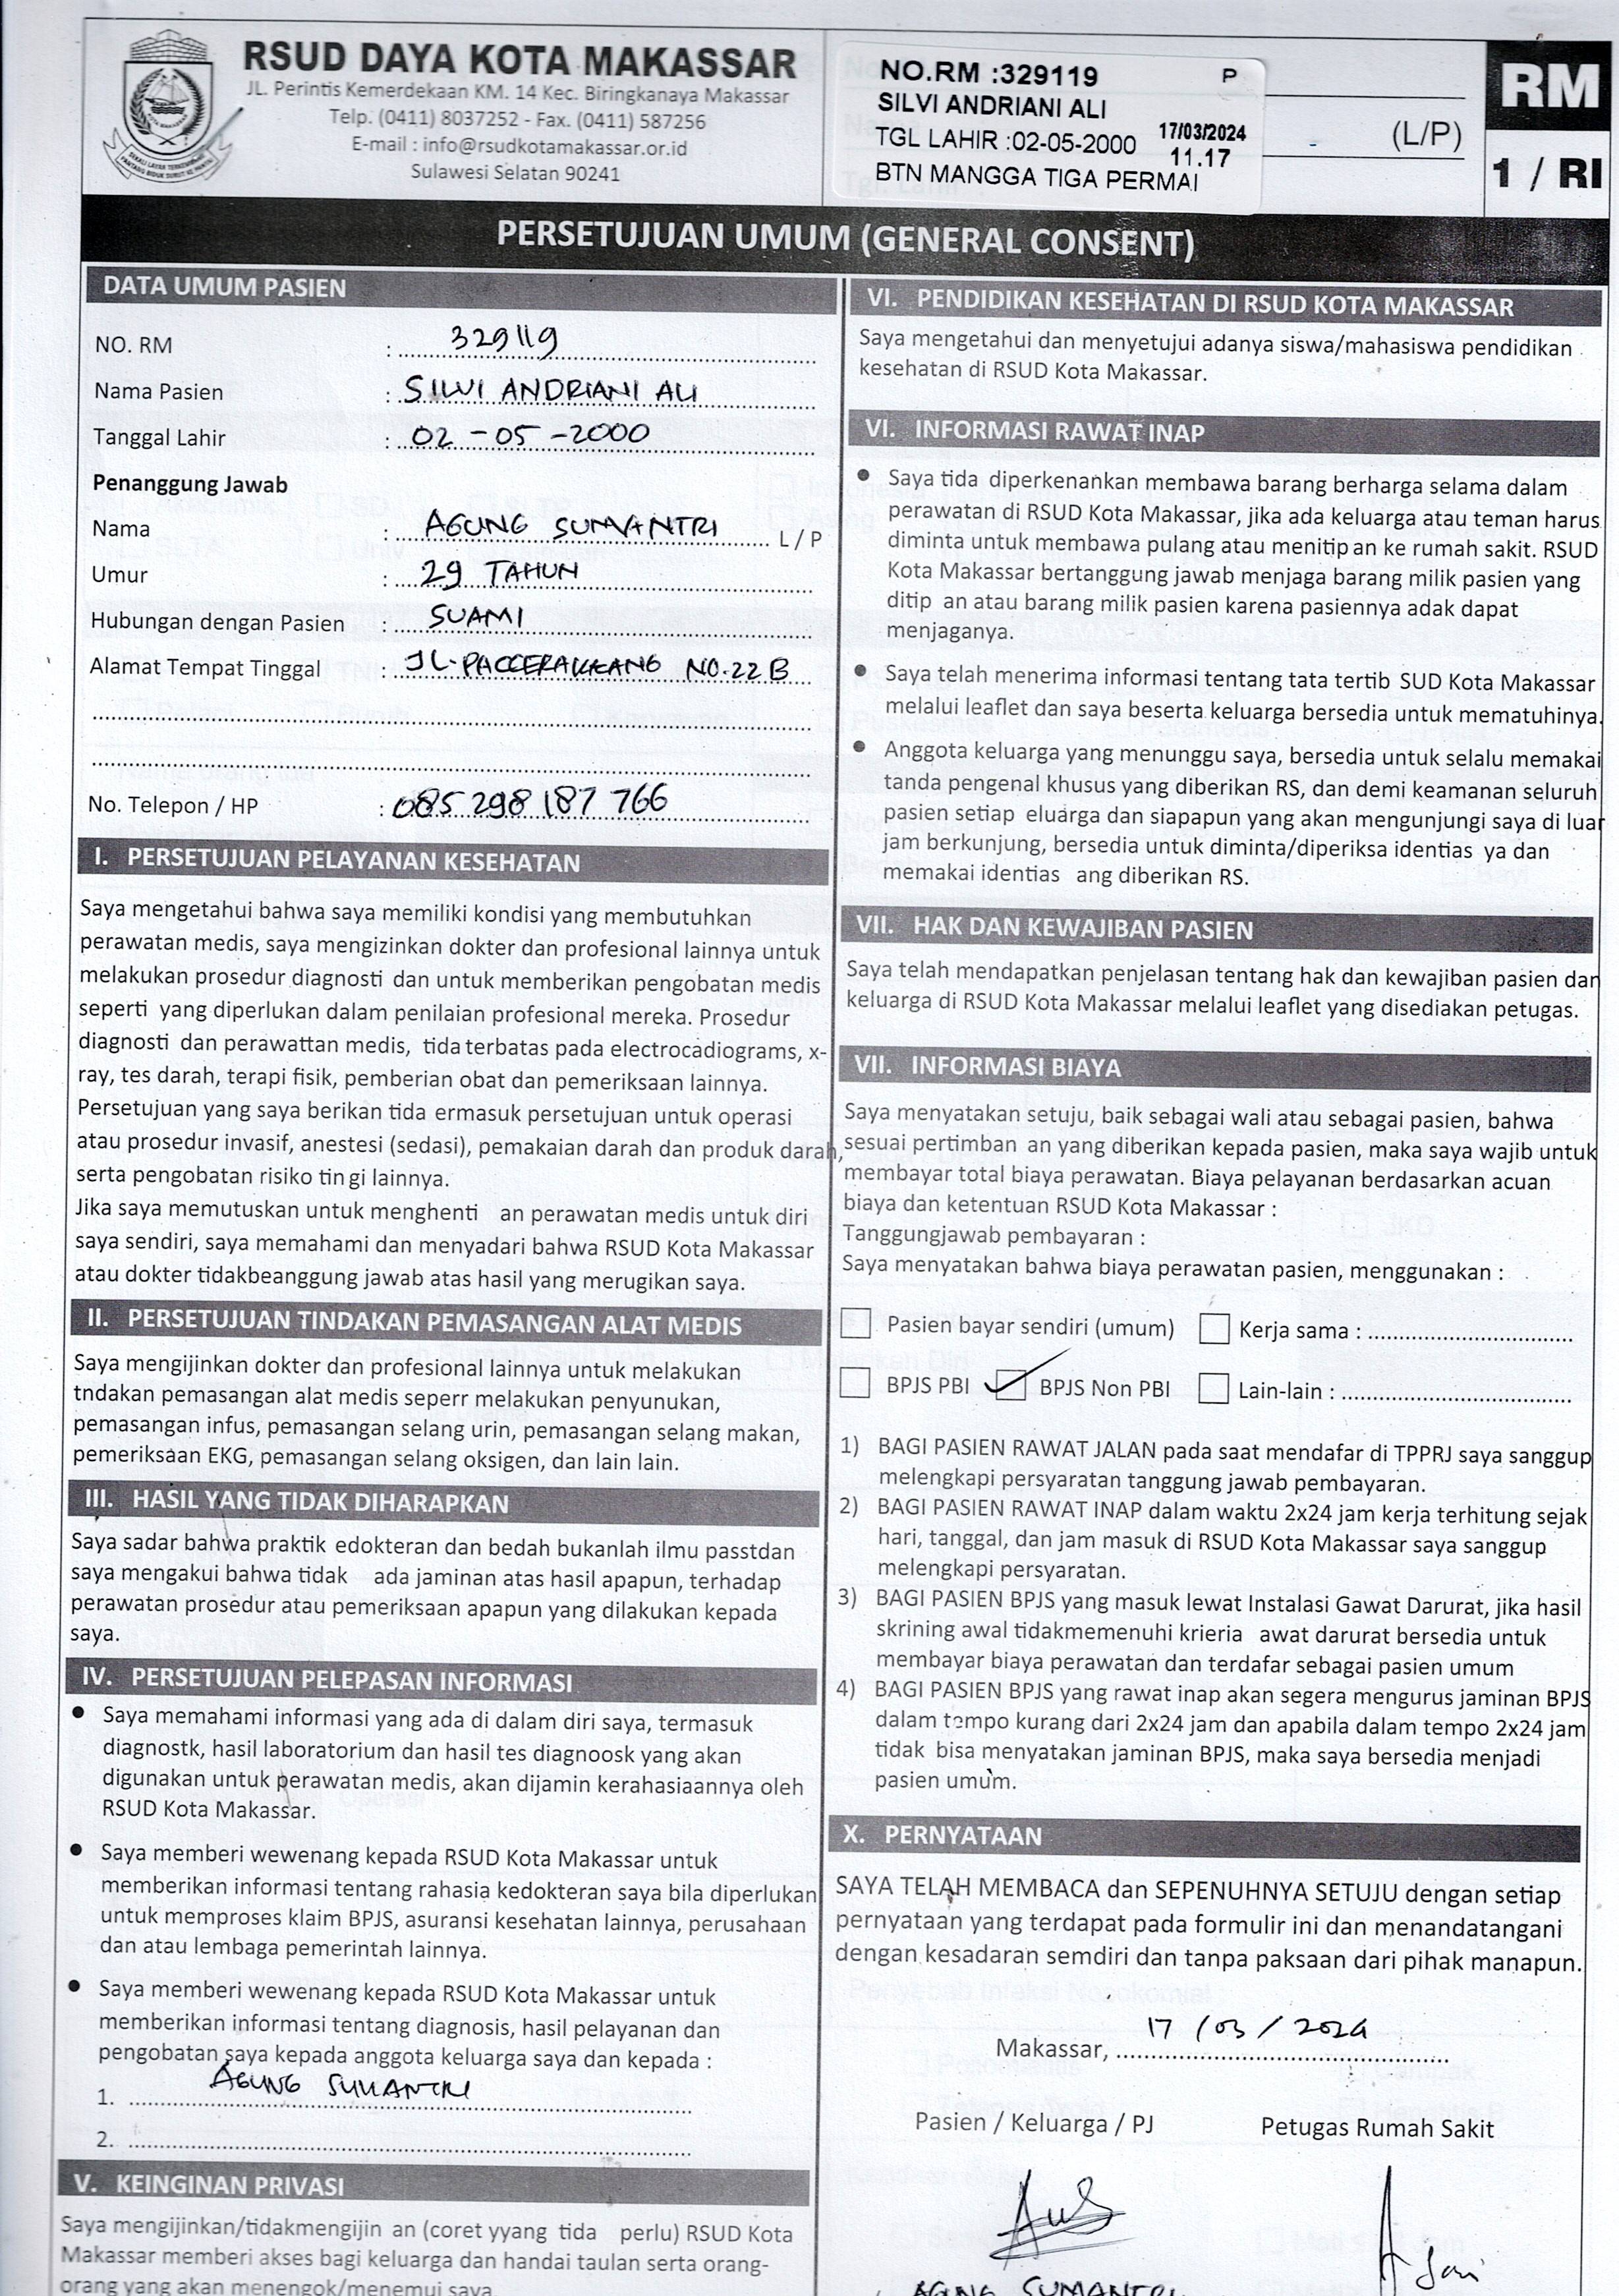 RSUD DAYA KOTA MAKASSAR
JL. Perintis Kemerdekaan KM. 14 Kec. Biringkanaya Makassar
Telp. (0411) 8037252 - Fax. (0411) 587256
E-mail : info@rsudkotamakassar.or.id
Sulawesi Selatan 90241
NO.RM :329119 P
SILVI ANDRIANI ALI
TGL LAHIR :02-05-2000 17/03/2024
11.17
BTN MANGGA TIGA PERMAI
(L/P)
RM
1 / RI
PERSETUJUAN UMUM (GENERAL CONSENT)
DATA UMUM PASIEN
NO. RM : 329119
Nama Pasien : SILVI ANDRIANI ALI
Tanggal Lahir : 02-05-2000
Penanggung Jawab
Nama : AGUNG SUMANTRI L / P
Umur : 29 TAHUN
Hubungan dengan Pasien : SUAMI
Alamat Tempat Tinggal : JL. PACCERAKKANG NO.22 B
No. Telepon / HP : 085 298 187 766
I. PERSETUJUAN PELAYANAN KESEHATAN
Saya mengetahui bahwa saya memiliki kondisi yang membutuhkan
perawatan medis, saya mengizinkan dokter dan profesional lainnya untuk
melakukan prosedur diagnosti dan untuk memberikan pengobatan medis
seperti yang diperlukan dalam penilaian profesional mereka. Prosedur
diagnosti dan perawattan medis, tida terbatas pada electrocadiograms, x-
ray, tes darah, terapi fisik, pemberian obat dan pemeriksaan lainnya.
Persetujuan yang saya berikan tida ermasuk persetujuan untuk operasi
atau prosedur invasif, anestesi (sedasi), pemakaian darah dan produk darah,
serta pengobatan risiko tin gi lainnya.
Jika saya memutuskan untuk menghenti an perawatan medis untuk diri
saya sendiri, saya memahami dan menyadari bahwa RSUD Kota Makassar
atau dokter tidakbeanggung jawab atas hasil yang merugikan saya.
II. PERSETUJUAN TINDAKAN PEMASANGAN ALAT MEDIS
Saya mengijinkan dokter dan profesional lainnya untuk melakukan
tndakan pemasangan alat medis seperr melakukan penyunukan,
pemasangan infus, pemasangan selang urin, pemasangan selang makan,
pemeriksaan EKG, pemasangan selang oksigen, dan lain lain.
III. HASIL YANG TIDAK DIHARAPKAN
Saya sadar bahwa praktik edokteran dan bedah bukanlah ilmu passtdan
saya mengakui bahwa tidak ada jaminan atas hasil apapun, terhadap
perawatan prosedur atau pemeriksaan apapun yang dilakukan kepada
saya.
IV. PERSETUJUAN PELEPASAN INFORMASI
● Saya memahami informasi yang ada di dalam diri saya, termasuk
diagnostk, hasil laboratorium dan hasil tes diagnoosk yang akan
digunakan untuk perawatan medis, akan dijamin kerahasiaannya oleh
RSUD Kota Makassar.
● Saya memberi wewenang kepada RSUD Kota Makassar untuk
memberikan informasi tentang rahasia kedokteran saya bila diperlukan
untuk memproses klaim BPJS, asuransi kesehatan lainnya, perusahaan
dan atau lembaga pemerintah lainnya.
● Saya memberi wewenang kepada RSUD Kota Makassar untuk
memberikan informasi tentang diagnosis, hasil pelayanan dan
pengobatan saya kepada anggota keluarga saya dan kepada :
1. AGUNG SUMANTRI
2.
V. KEINGINAN PRIVASI
Saya mengijinkan/tidakmengijin an (coret yyang tida perlu) RSUD Kota
Makassar memberi akses bagi keluarga dan handai taulan serta orang-
orang yang akan menengok/menemui saya.
VI. PENDIDIKAN KESEHATAN DI RSUD KOTA MAKASSAR
Saya mengetahui dan menyetujui adanya siswa/mahasiswa pendidikan
kesehatan di RSUD Kota Makassar.
VI. INFORMASI RAWAT INAP
● Saya tida diperkenankan membawa barang berharga selama dalam
perawatan di RSUD Kota Makassar, jika ada keluarga atau teman harus
diminta untuk membawa pulang atau menitip an ke rumah sakit. RSUD
Kota Makassar bertanggung jawab menjaga barang milik pasien yang
ditip an atau barang milik pasien karena pasiennya adak dapat
menjaganya.
● Saya telah menerima informasi tentang tata tertib SUD Kota Makassar
melalui leaflet dan saya beserta keluarga bersedia untuk mematuhinya.
● Anggota keluarga yang menunggu saya, bersedia untuk selalu memakai
tanda pengenal khusus yang diberikan RS, dan demi keamanan seluruh
pasien setiap eluarga dan siapapun yang akan mengunjungi saya di luar
jam berkunjung, bersedia untuk diminta/diperiksa identias ya dan
memakai identias ang diberikan RS.
VII. HAK DAN KEWAJIBAN PASIEN
Saya telah mendapatkan penjelasan tentang hak dan kewajiban pasien dan
keluarga di RSUD Kota Makassar melalui leaflet yang disediakan petugas.
VII. INFORMASI BIAYA
Saya menyatakan setuju, baik sebagai wali atau sebagai pasien, bahwa
sesuai pertimban an yang diberikan kepada pasien, maka saya wajib untuk
membayar total biaya perawatan. Biaya pelayanan berdasarkan acuan
biaya dan ketentuan RSUD Kota Makassar :
Tanggungjawab pembayaran :
Saya menyatakan bahwa biaya perawatan pasien, menggunakan :
☐ Pasien bayar sendiri (umum) ☐ Kerja sama :
☐ BPJS PBI ☑ BPJS Non PBI ☐ Lain-lain :
1) BAGI PASIEN RAWAT JALAN pada saat mendafar di TPPRJ saya sanggup
melengkapi persyaratan tanggung jawab pembayaran.
2) BAGI PASIEN RAWAT INAP dalam waktu 2x24 jam kerja terhitung sejak
hari, tanggal, dan jam masuk di RSUD Kota Makassar saya sanggup
melengkapi persyaratan.
3) BAGI PASIEN BPJS yang masuk lewat Instalasi Gawat Darurat, jika hasil
skrining awal tidakmemenuhi krieria awat darurat bersedia untuk
membayar biaya perawatan dan terdafar sebagai pasien umum
4) BAGI PASIEN BPJS yang rawat inap akan segera mengurus jaminan BPJS
dalam tempo kurang dari 2x24 jam dan apabila dalam tempo 2x24 jam
tidak bisa menyatakan jaminan BPJS, maka saya bersedia menjadi
pasien umum.
X. PERNYATAAN
SAYA TELAH MEMBACA dan SEPENUHNYA SETUJU dengan setiap
pernyataan yang terdapat pada formulir ini dan menandatangani
dengan kesadaran semdiri dan tanpa paksaan dari pihak manapun.
Makassar, 17 / 03 / 2024
Pasien / Keluarga / PJ Petugas Rumah Sakit
AGUNG SUMANTRI